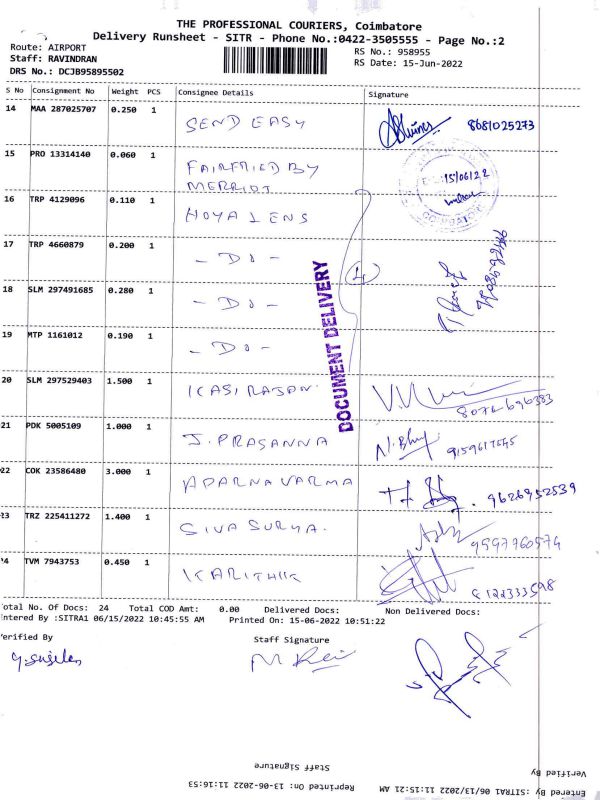 THE PROFESSIONAL COURIERS, Coimbatore
Delivery Runsheet - SITR - Phone No.:0422-3505555 - Page No.:2
Route: AIRPORT
Staff: RAVINDRAN
DRS No.: DCJB95895502
RS No.: 958955
RS Date: 15-Jun-2022
S No Consignment No Weight PCS Consignee Details Signature
14 MAA 287025707 0.250 1 SEND EASY 8681025273
15 PRO 13314140 0.060 1 FAIRFRIED BY
MERRIOT
15/06/22
COIMBATORE
16 TRP 4129096 0.110 1 HOYA LENS
17 TRP 4660879 0.200 1 - DO -
4
18 SLM 297491685 0.280 1 - DO -
19 MTP 1161012 0.190 1 - DO -
DOCUMENT DELIVERY
20 SLM 297529403 1.500 1 KASI RAJAN. 8072696383
21 PDK 5005109 1.000 1 J. PRASANNA N. Bhuj
22 COK 23586480 3.000 1 APARNA VARMA 9626952539
23 TRZ 225411272 1.400 1 SIVA SURYA. 9597760574
24 TVM 7943753 0.450 1 KARITHIK 8122333598
otal No. Of Docs: 24 Total COD Amt: 0.00 Delivered Docs: Non Delivered Docs:
ntered By :SITRA1 06/15/2022 10:45:55 AM Printed On: 15-06-2022 10:51:22
erified By Staff Signature
Staff Signature
Verified By
Reprinted On: 13-06-2022 11:16:53
Entered By :SITRA1 06/13/2022 11:15:21 AM